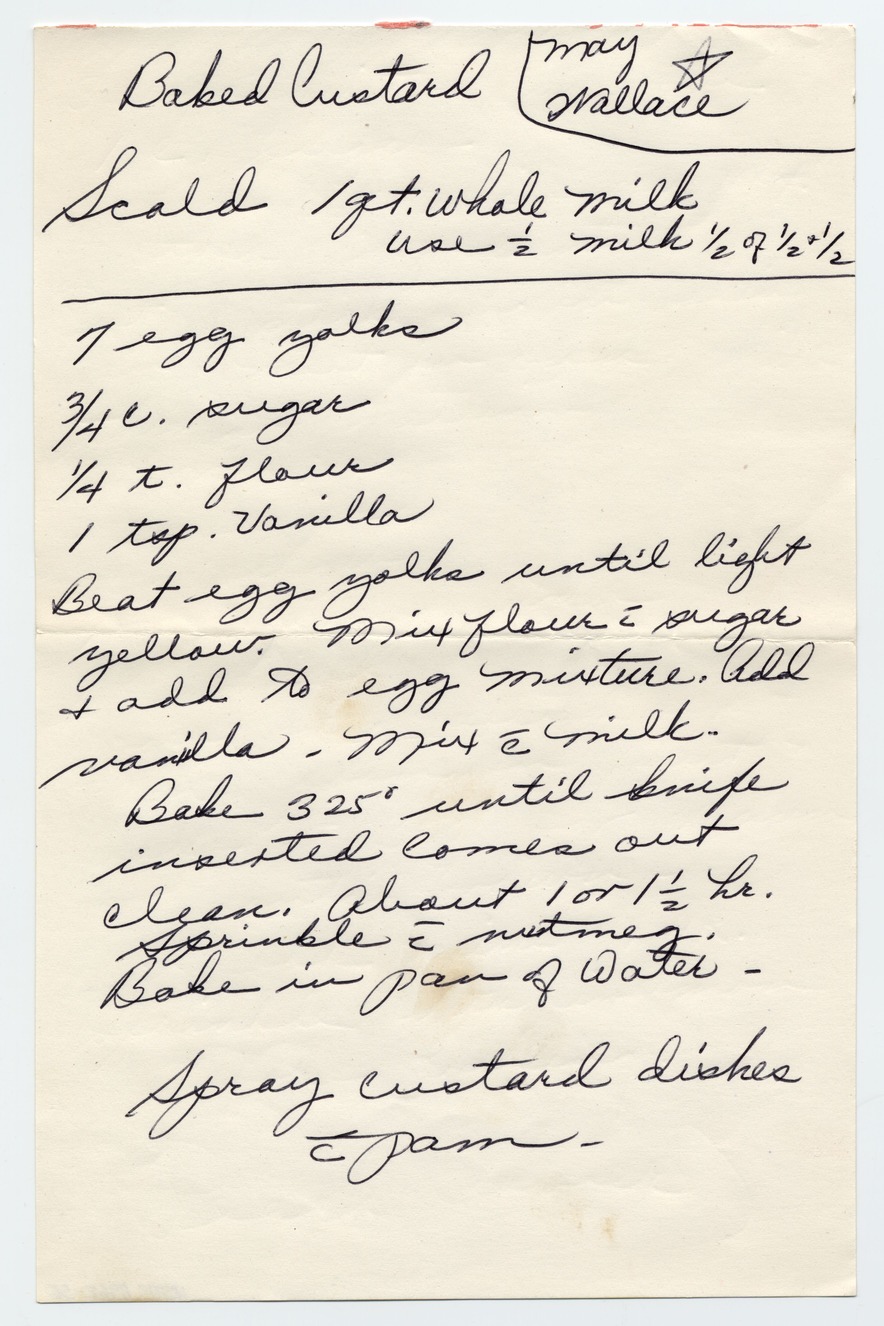 Baked Custard
May
Wallace
Scald 1 qt. whole milk
use ½ milk ½ of ½ + ½
7 egg yolks
3/4 c. sugar
1/4 t. flour
1 tsp. Vanilla
Beat egg yolks until light
yellow. Mix flour c̄ sugar
+ add to egg mixture. Add
vanilla - Mix c̄ milk.
Bake 325° until knife
inserted comes out
clean. About 1 or 1½ hr.
Sprinkle c̄ nutmeg.
Bake in pan of Water -
Spray custard dishes
c̄ pam -